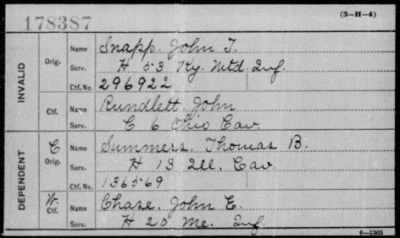 178387
(3-H-4)
INVALID
Orig.
Name Snapp, John T.
Serv. H 53 Ky. Mtd. Inf.
Ctf. No. 296922
Ctf.
Name Rundlett, John
Serv. C 6 Ohio Cav.
DEPENDENT
C
Orig.
Name Summers, Thomas B.
Serv. H 13 Ill. Cav.
Ctf. No. 136569
W.
Ctf.
Name Chase, John E.
Serv. H 20 Me. Inf